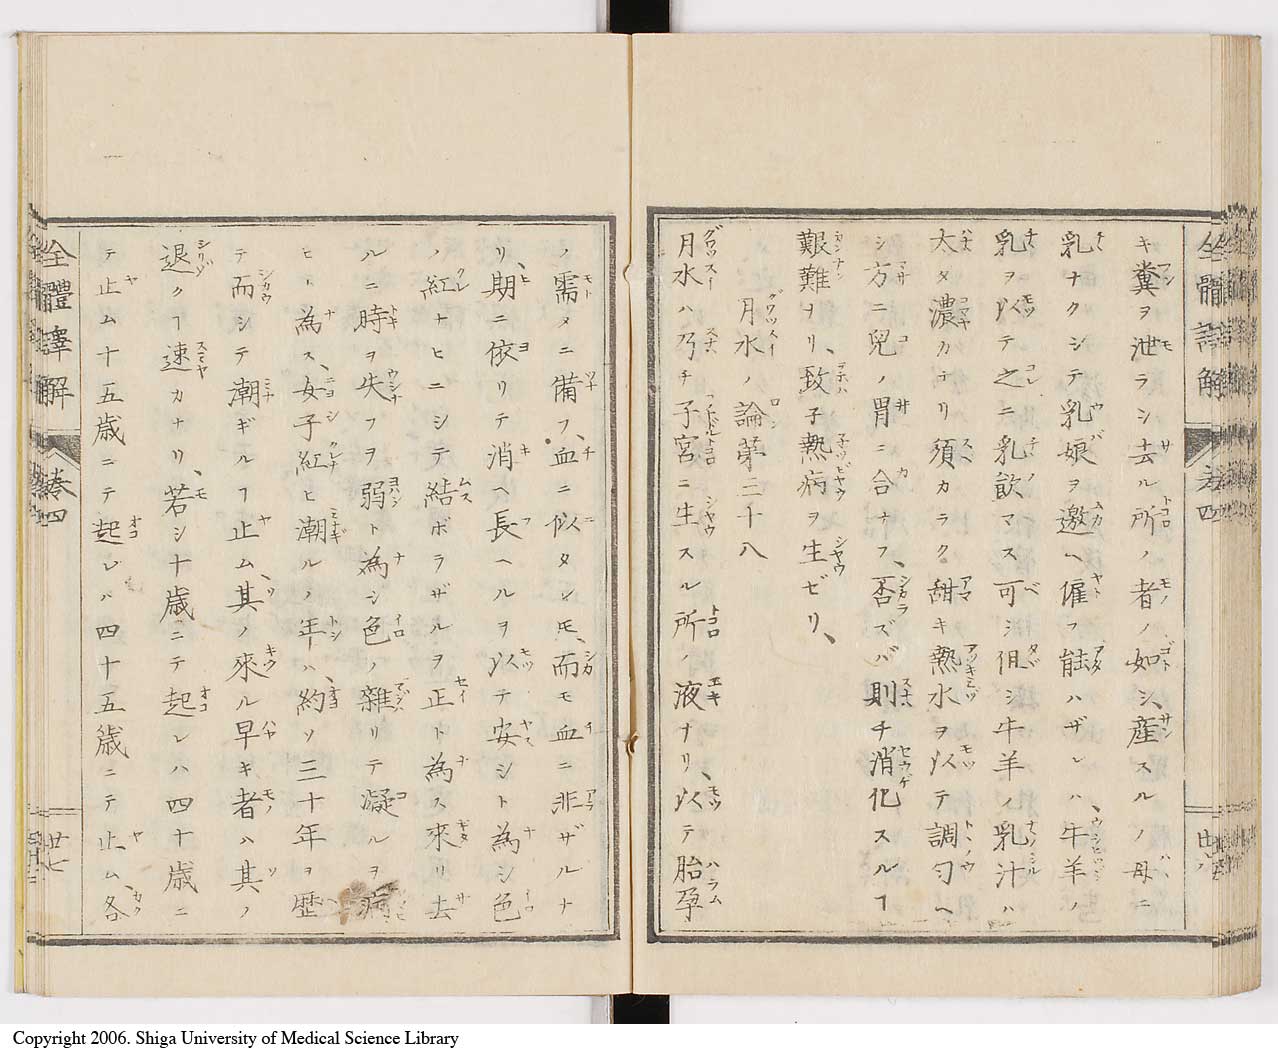 キ糞ヲ泄ラシ去ル所ノ者ノ如シ、産スルノ母ニ
乳ナクシテ乳娘ヲ邀ヘ僱フ能ハザレハ、牛羊ノ
乳ヲ以テ之ニ乳飲マス可シ但シ牛羊ノ乳汁ハ
太タ濃カテリ須カラク甜キ熱水ヲ以テ調匀ヘ
シ方ニ兒ノ胃ニ合ナフ、否ズバ則チ消化スルヿ
艱難ヲリ、致子熱病ヲ生ゼリ、
月水ノ論第三十八
月水ハ乃チ子宮ニ生スル所ノ液ナリ、以テ胎孕
ノ需メニ備フ、血ニ似タレ𪜈、而モ血ニ非ザルナ
リ、期ニ依リテ消ヘ長ヘルヲ以テ安シト為シ色
ノ紅ナヒニシテ結ボラザルヲ正ト為ス來リ去
ルニ時ヲ失フヲ弱ト為シ色ノ雜リテ凝ルヲ病
ヒト為ス、女子紅ヒ潮ルノ年ハ、約ソ三十年ヲ歴
テ而シテ潮ギルヿ止ム、其ノ來ル早キ者ハ其ノ
退クヿ速カナリ、若シ十歳ニテ起レハ四十歳ニ
テ止ム十五歳ニテ起レハ四十五歳ニテ止ム、各
全體譯解 卷四
廿七
Copyright 2006. Shiga University of Medical Science Library